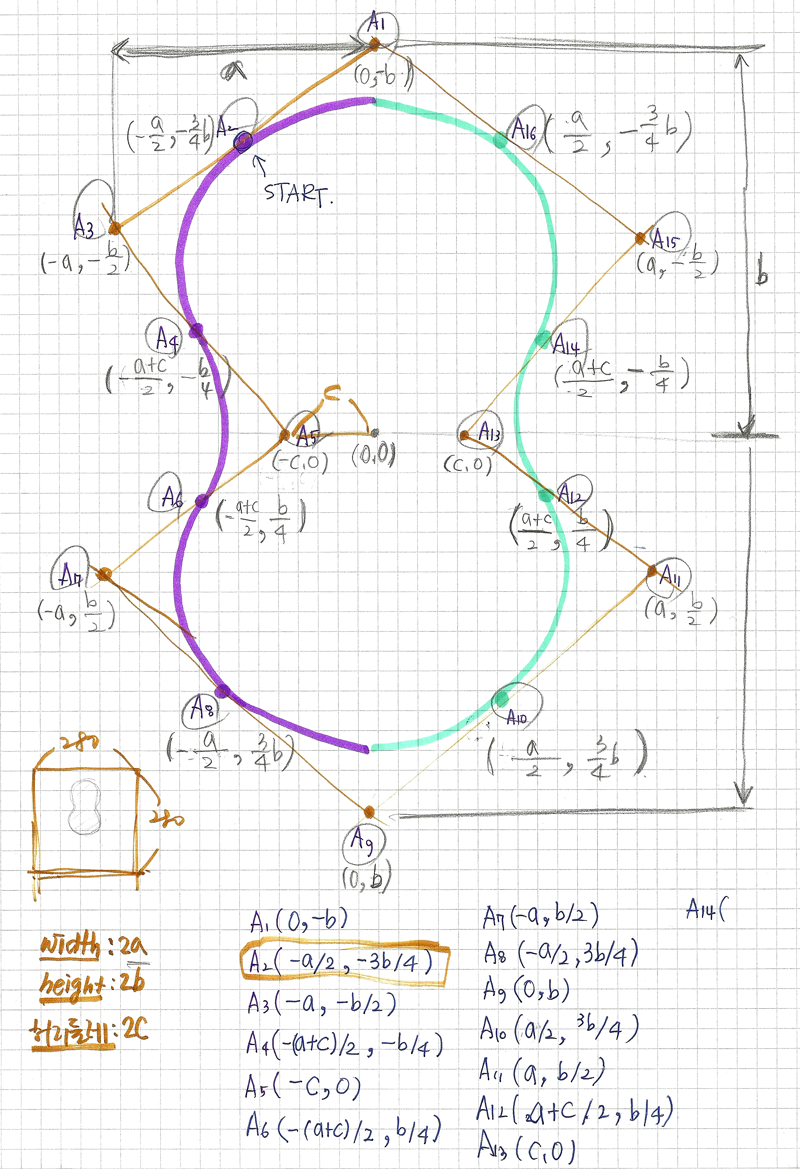 A1
(0,-b)
a
A2
(-a/2, -3/4b)
START.
A16
(a/2, -3/4b)
A3
(-a, -b/2)
A15
(a, -b/2)
b
A4
(-a+c/2, -b/4)
A14
(a+c/2, -b/4)
C
A5
(-c,0)
(0,0)
A13
(c,0)
A6
(-a+c/2, b/4)
A12
(a+c/2, b/4)
A7
(-a, b/2)
A11
(a, b/2)
A8
(-a/2, 3/4b)
A10
(a/2, 3/4b)
280
280
A9
(0,b)
width:2a
height:2b
허리둘레:2C
A1(0,-b)
A2(-a/2, -3b/4)
A3(-a, -b/2)
A4(-(a+c)/2, -b/4)
A5(-c,0)
A6(-(a+c)/2, b/4)
A7(-a, b/2)
A8(-a/2, 3b/4)
A9(0,b)
A10(a/2, 3b/4)
A11(a, b/2)
A12(a+c/2, b/4)
A13(c,0)
A14(